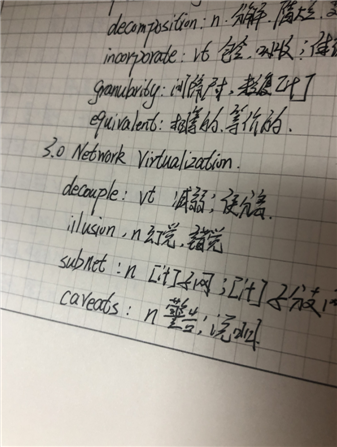 decomposition: n. 分解
incorporate: vt 包含, 吸收;
granubrity: 间隔尺寸, 粒度[计]
equivalent: 相等的, 等价的.
3.0 Network Virtualization.
decouple: vt 减弱;
illusion, n 幻觉, 错觉
subnet: n [计]子网; [计] 子
caveats: n 警告; 说明